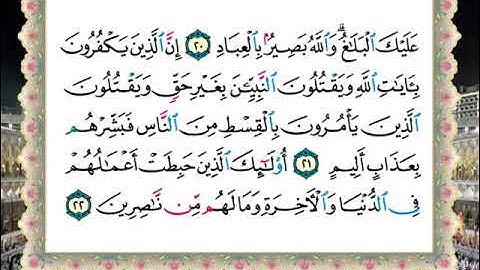 عَلَيْكَ ٱلْبَلَٰغُ ۗ وَٱللَّهُ بَصِيرٌۢ بِٱلْعِبَادِ ٢٠ إِنَّ ٱلَّذِينَ يَكْفُرُونَ
بِـَٔايَٰتِ ٱللَّهِ وَيَقْتُلُونَ ٱلنَّبِيِّـۧنَ بِغَيْرِ حَقٍّ وَيَقْتُلُونَ
ٱلَّذِينَ يَأْمُرُونَ بِٱلْقِسْطِ مِنَ ٱلنَّاسِ فَبَشِّرْهُم
بِعَذَابٍ أَلِيمٍ ٢١ أُو۟لَٰٓئِكَ ٱلَّذِينَ حَبِطَتْ أَعْمَٰلُهُمْ
فِى ٱلدُّنْيَا وَٱلْـَٔاخِرَةِ وَمَا لَهُم مِّن نَّٰصِرِينَ ٢٢